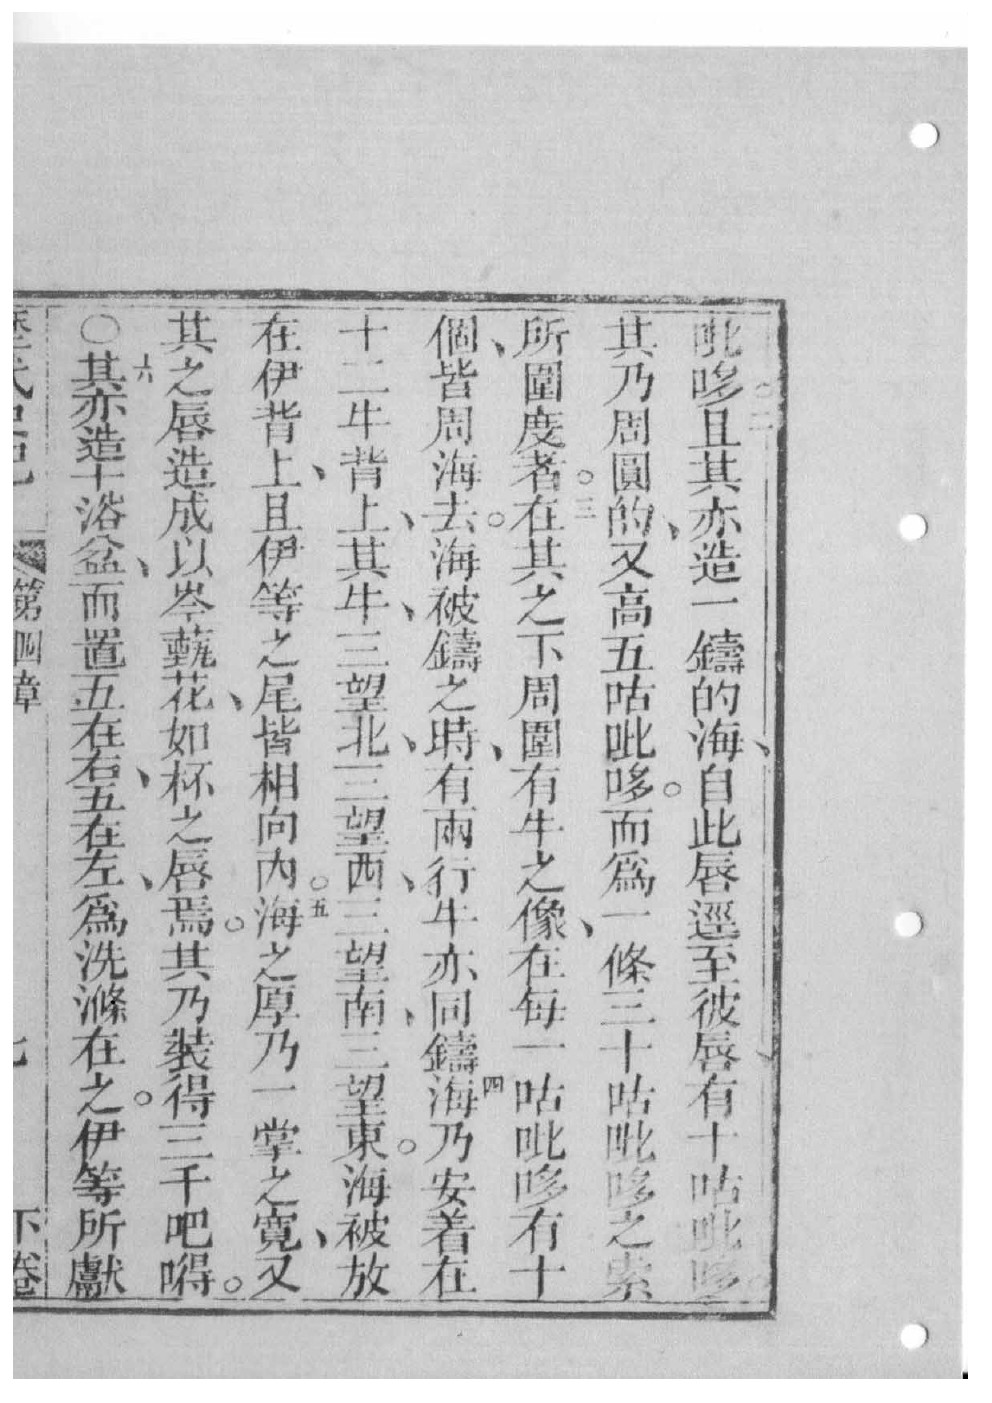 吡哆。二且其亦造一鑄的海、自此唇逕至彼唇有十咕吡哆。
其乃周圓的、又高五咕吡哆。而爲一條三十咕吡哆之索
所圍度者。三在其之下周圍有牛之像、在每一咕吡哆有十
個、皆周海去。海被鑄之時、有兩行牛亦同鑄四海乃安着在
十二牛背上、其牛、三望北、三望西、三望南、三望東。海被放
在伊背上、且伊等之尾皆相向內。五海之厚乃一掌之寬、又
其之唇造成以岑蓺花、如杯之唇焉。其乃裝得三千吧嘚。
○六其亦造十浴盆、而置五在右、五在左、爲洗滌在之。伊等所獻
歷代史記 第四章 七 下卷